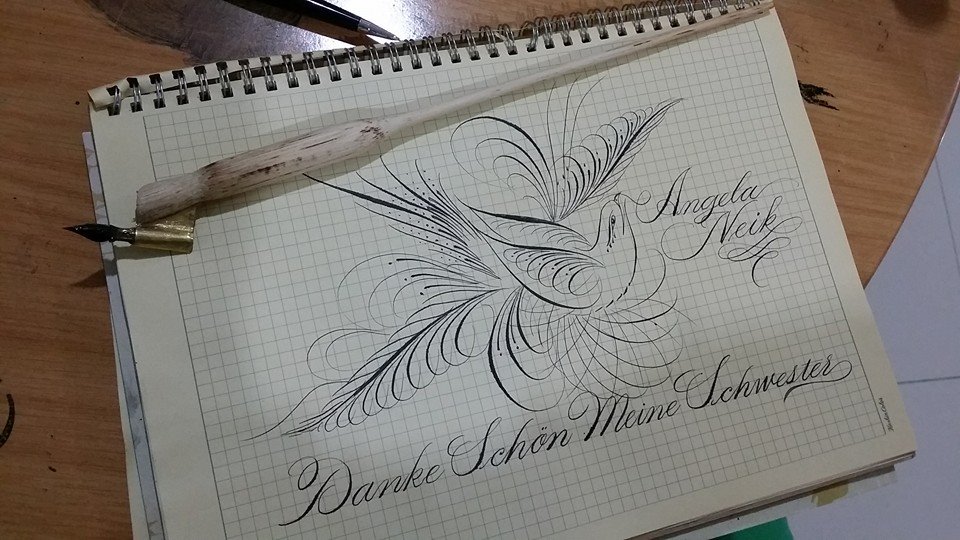 Angela
Neik
Danke Schön Meine Schwester